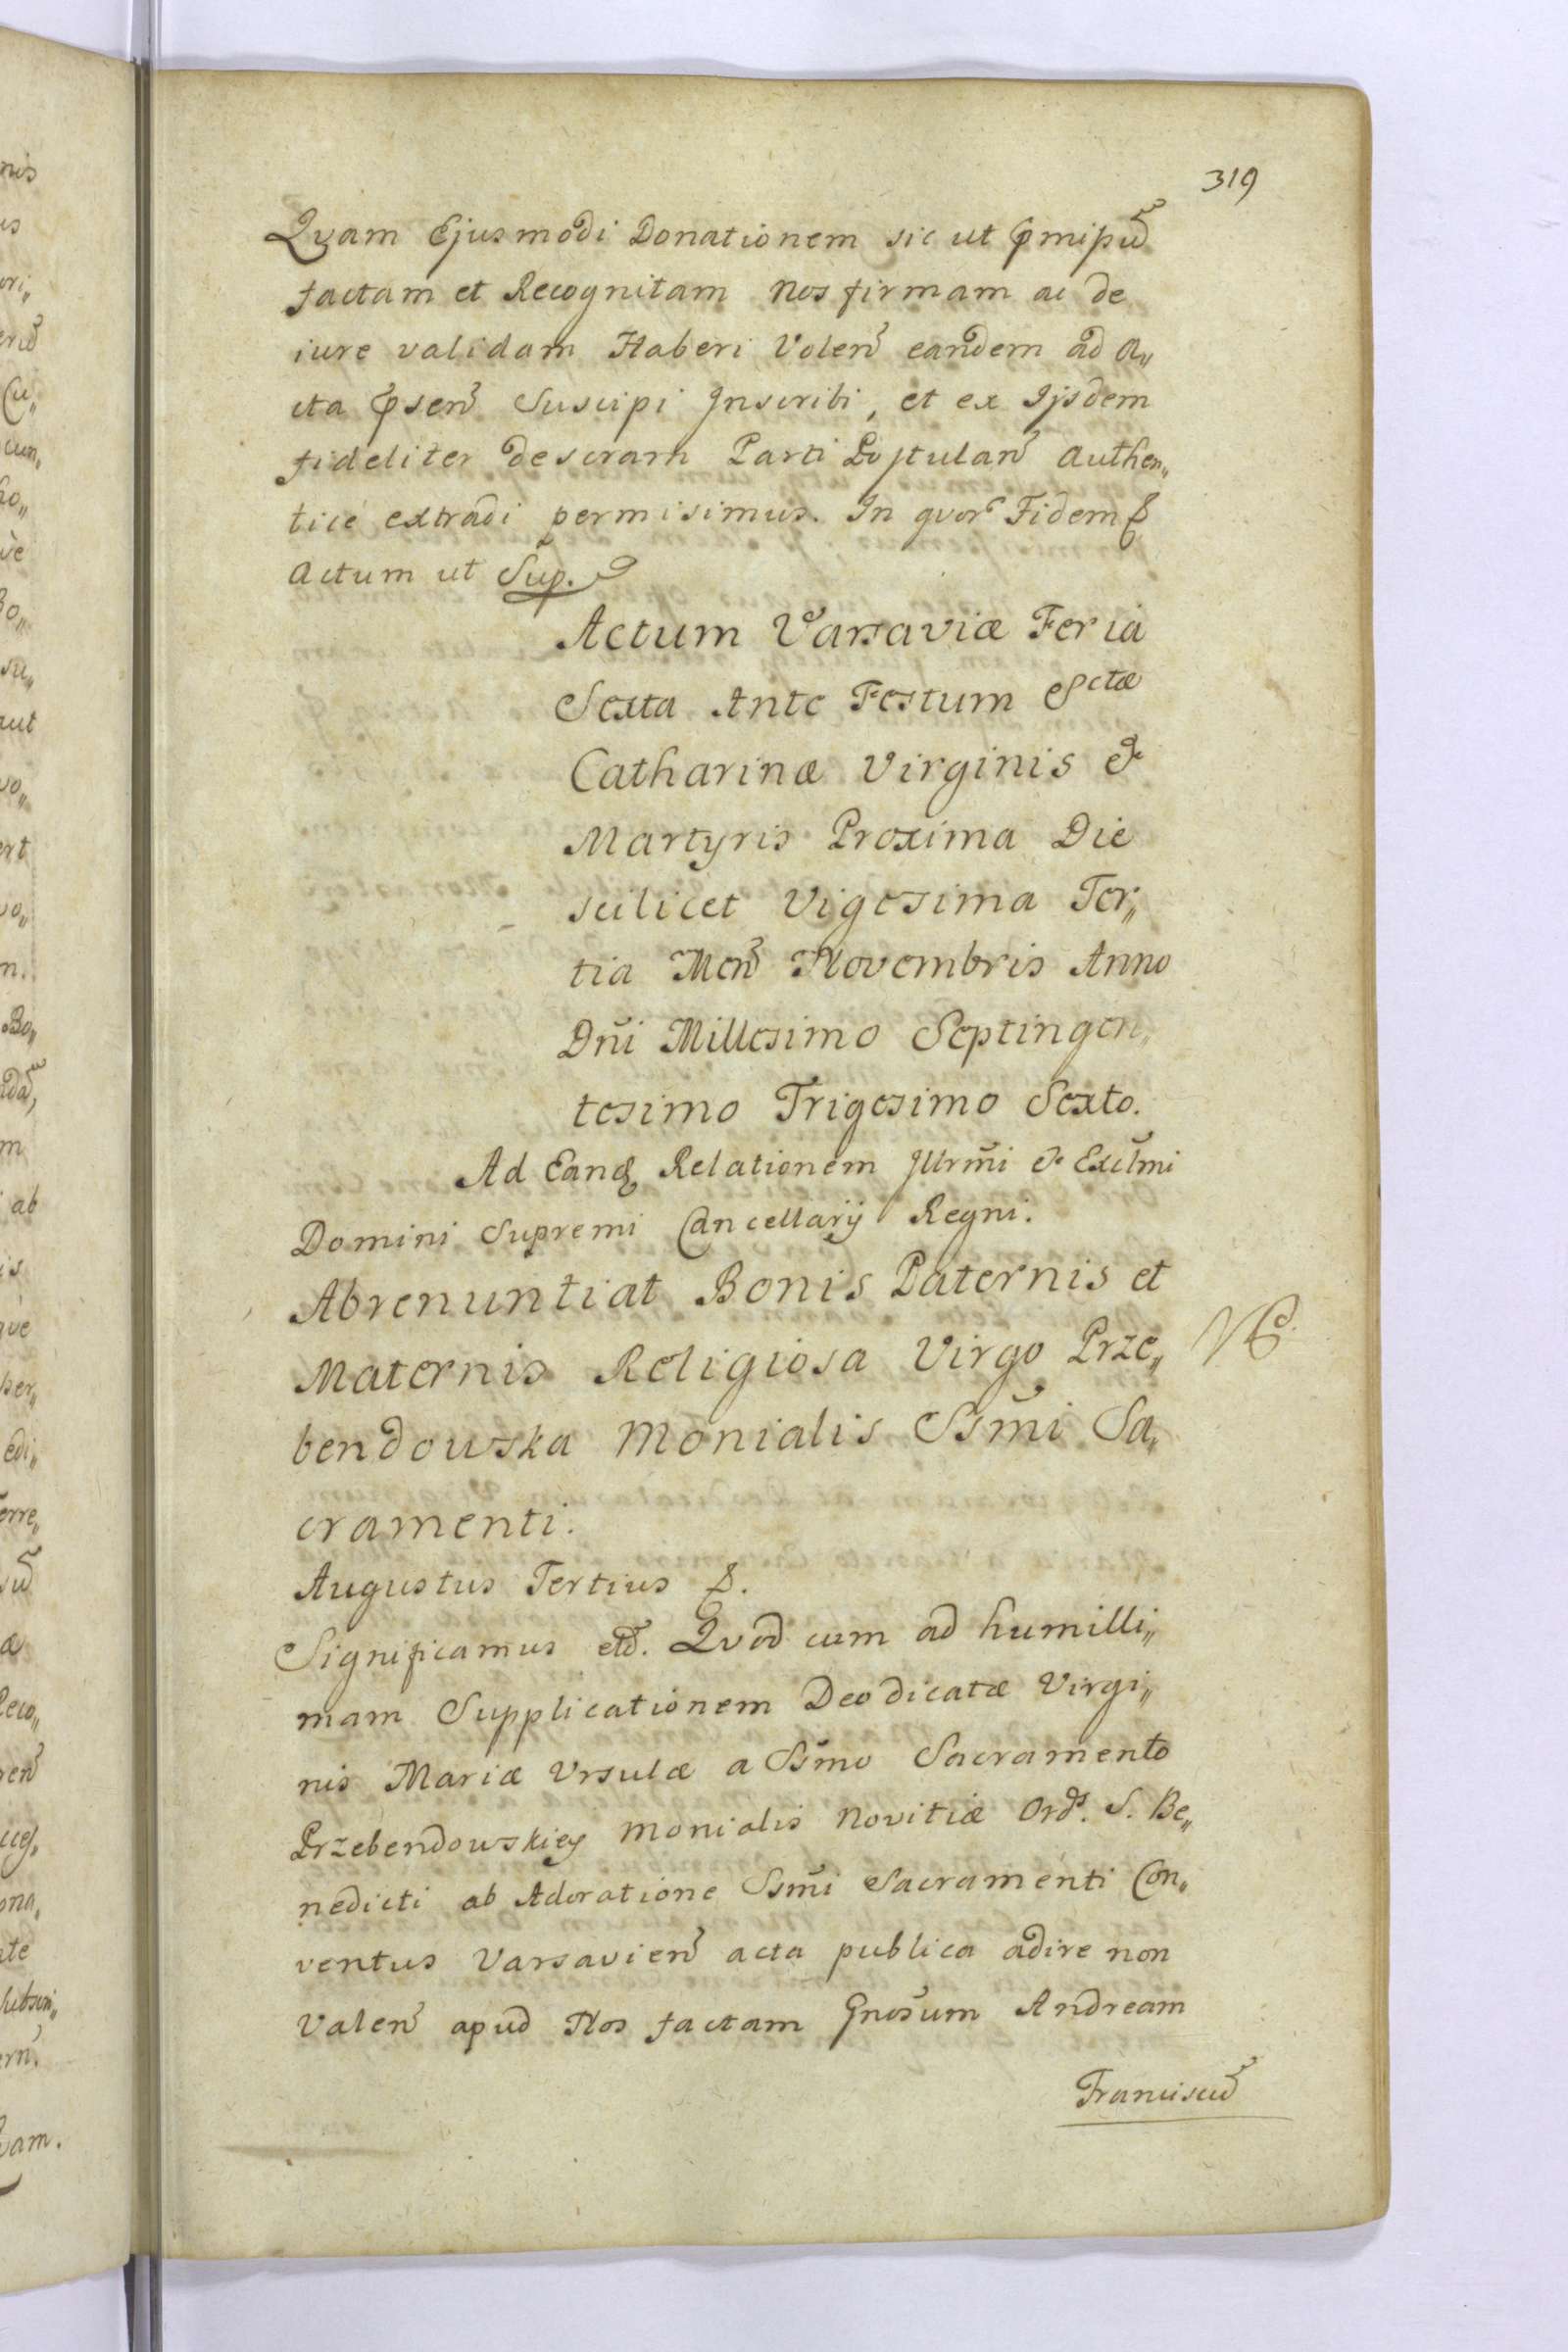 319
Qvam Ejusmodi Donationem sic ut p̃mipũ
factam et Recognitam Nos firmam ac de
iure validam Haberi Volen̄ eandem ad A„
cta p̃sen̄ Suscipi Inscribi, et ex Ijsdem
fideliter descram Parti Postulan̄ Authen„
tice extradi permisimus. In qvor Fidem &
Actum ut Sup.
Actum Varsaviæ Feria
Sexta Ante Festum Sctæ
Catharinæ Virginis &
Martyris Proxima Die
scilicet Vigesima Ter„
tia Men̄ Novembris Anno
Dn̄i Millesimo Septingen„
tesimo Trigesimo Sexto.
Ad Eandꝫ Relationem Illrm̄i & Exclm̄i
Domini Supremi Cancellarij Regni.
Abrenuntiat Bonis Paternis et
Maternis Religiosa Virgo Prze„
NB.
bendowska Monialis Ssm̄i Sa„
cramenti.
Augustus Tertius &.
Significamus etc̃. Qvod cum ad humilli„
mam Supplicationem Deo dicatæ Virgi„
nis Mariæ Vrsulæ a Ssm̄o Sacramento
Przebendowskiey Monialis Novitiæ Ordis. S. Be„
nedicti ab Adoratione Ssm̄i Sacramenti Con„
ventus Varsavien̄ acta publica adire non
Valen̄ apud Nos factam Gnosum Andream
Franciscũ